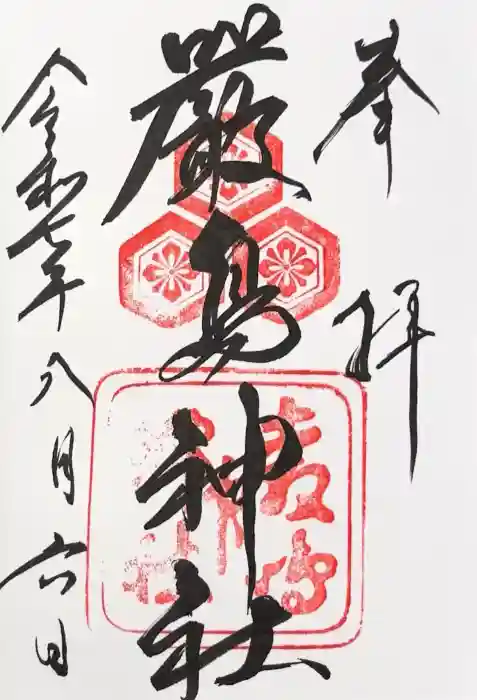 奉拝
嚴島神社
令和七年八月六日